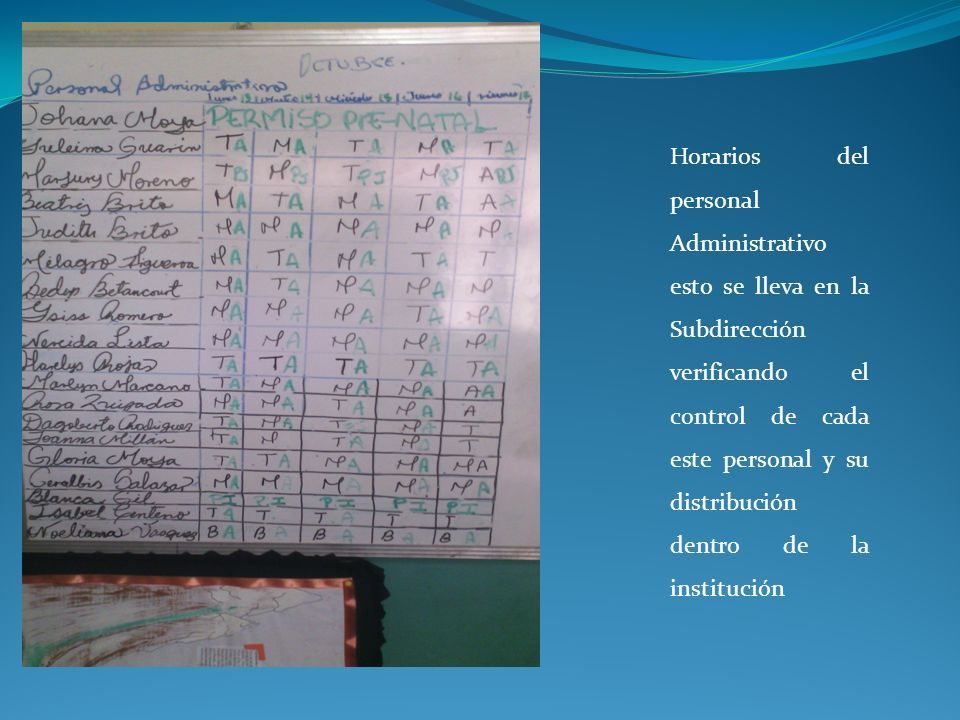 OCTUBRE.
Personal Administrativo
PERMISO PRE-NATAL
Johana Moya
Yuleima Guarin TA MA TA MA TA
Marjury Moreno TPJ MPJ TPJ MPJ APJ
Beatriz Brito MA TA MA TA AA
Judith Brito MA MA MA MA M
Milagro Figueroa MA TA MA TA T
Betancourt MA TA MA MA M
Romero MA MA MA TA MA
Nercida Lista MA MA MA MA MA
Harelys Rojas TA TA TA TA TA
Marlyn Marcano TA MA MA MA AA
Rosa Quijada MA MA TA MA A
Dagoberto Rodriguez TA MA
Joanna Millán TA M TA MJ T
Gloria Moya TA TA MA TA MA
Geralbis Salazar MA MA MA MA MA
Blanca Gil P.I P.I P.I P.I P.I
Isabel Centeno TA T T A T T
Noeliama Vasquez B A B A B A B A B A
Horarios del
personal
Administrativo
esto se lleva en la
Subdirección
verificando el
control de cada
este personal y su
distribución
dentro de la
institución